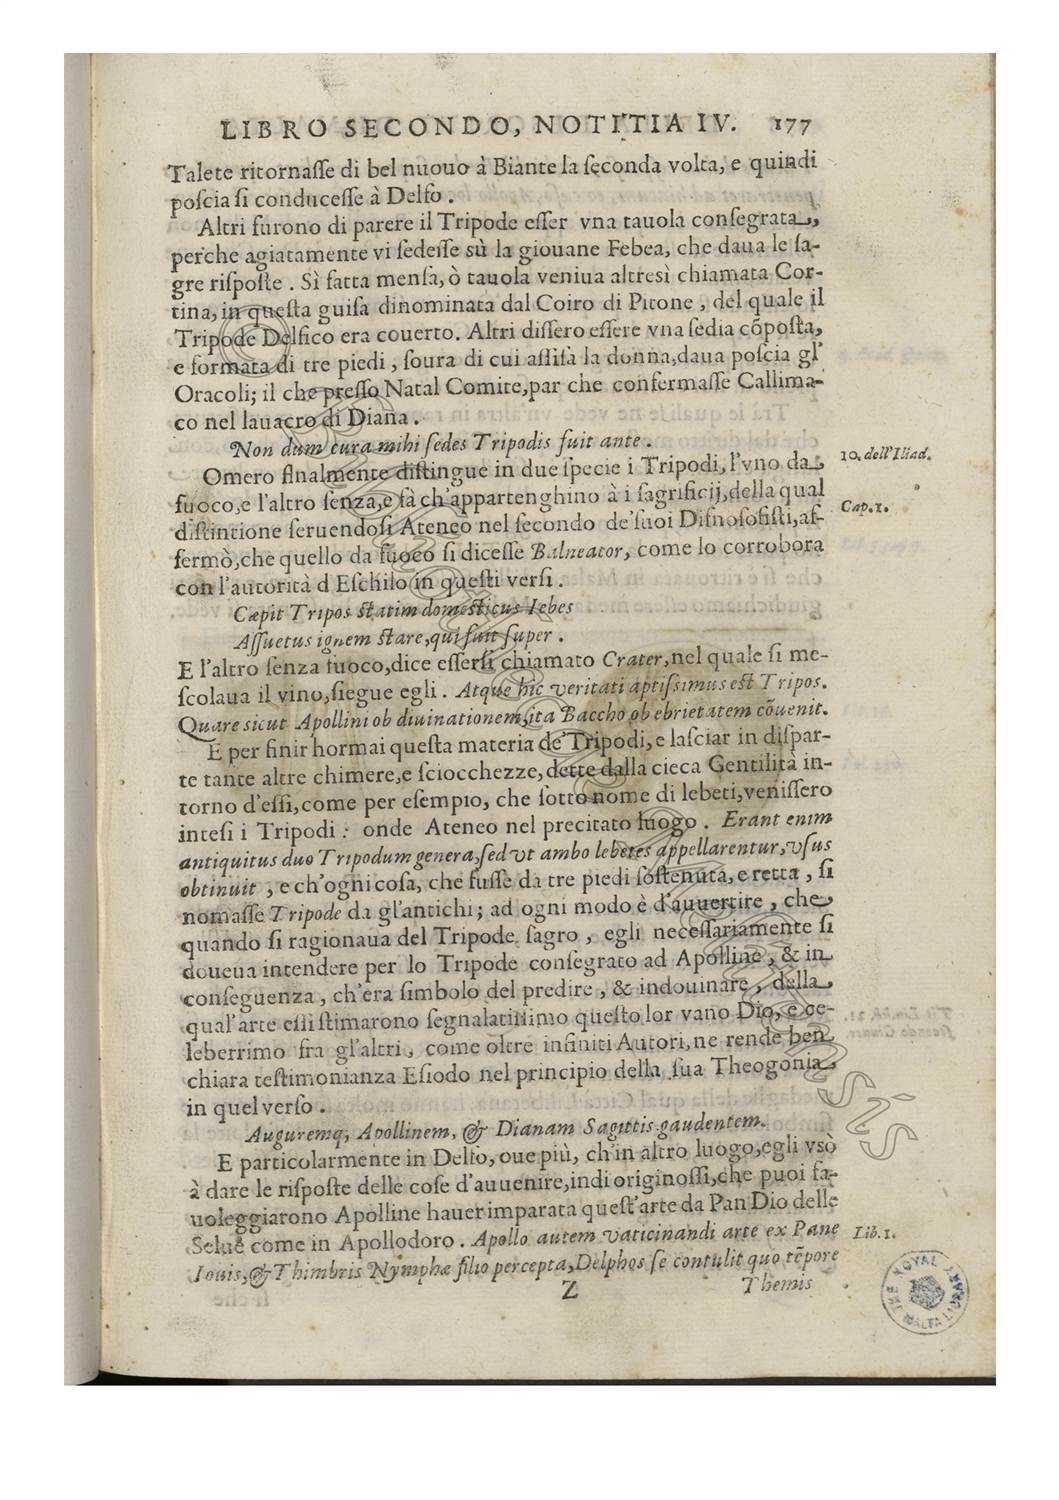 LIBRO SECONDO, NOTITIA IV. 177
Talete ritornaſſe di bel nuouo à Biante la ſeconda volta, e quindi
poſcia ſi conduceſſe à Delfo.
Altri furono di parere il Tripode eſſer vna tauola conſegrata,
perche agiatamente vi ſedeſſe sù la giouane Febea, che daua le ſa-
gre riſpoſte. Sì fatta menſa, ò tauola veniua altresì chiamata Cor-
tina, in queſta guiſa dinominata dal Coiro di Pitone, del quale il
Tripode Delfico era couerto. Altri diſſero eſſere vna ſedia cõpoſta,
e formata di tre piedi, ſoura di cui aſſiſà la donna, daua poſcia gl'
Oracoli; il che preſſo Natal Comite, par che confermaſſe Callima-
co nel lauacro di Diana.
Non dum cura mihi ſedes Tripodis fuit ante.
Omero finalmente diſtingue in due ſpecie i Tripodi, l'vno da
10. dell'Iliad.
fuoco, e l'altro ſenza, e fà ch'appartenghino à i ſagrificij, della qual
Cap. 1.
diſtintione ſeruendoſi Ateneo nel ſecondo de'ſuoi Diſnoſofiſti, af-
fermò, che quello da fuoco ſi diceſſe Balneator, come lo corrobora
con l'autorità d Eſchilo in queſti verſi.
Cæpit Tripos ſtatim domeſticus lebes
Aſſuetus ignem ſtare, qui fuit ſuper.
E l'altro ſenza fuoco, dice eſſerſi chiamato Crater, nel quale ſi me-
ſcolaua il vino, ſiegue egli. Atque hic veritati aptiſſimus eſt Tripos.
Quare sicut Apollini ob diuinationem, ita Baccho ob ebrietatem cõuenit.
E per finir hormai queſta materia de'Tripodi, e laſciar in diſpar-
te tante altre chimere, e ſciocchezze, dette dalla cieca Gentilità in-
torno d'eſſi, come per eſempio, che ſotto nome di lebeti, veniſſero
inteſi i Tripodi: onde Ateneo nel precitato luogo. Erant enim
antiquitus duo Tripodum genera, ſed vt ambo lebetes appellarentur, vſus
obtinuit, e ch'ogni coſa, che fuſſe da tre piedi ſoſtenuta, e retta, ſi
nomaſſe Tripode da gl'antichi; ad ogni modo è d'auuertire, che
quando ſi ragionaua del Tripode ſagro, egli neceſſariamente ſi
doueua intendere per lo Tripode conſegrato ad Apolline, & in
conſeguenza, ch'era ſimbolo del predire, & indouinare, della
qual'arte eſſi ſtimarono ſegnalatiſſimo queſto lor vano Dio, e ce-
leberrimo fra gl'altri, come oltre infiniti Autori, ne rende ben
chiara teſtimonianza Eſiodo nel principio della ſua Theogonia
in quel verſo.
Auguremq; Apollinem, & Dianam Sagittis gaudentem.
E particolarmente in Delfo, oue più, ch'in altro luogo, egli vsò
à dare le riſpoſte delle coſe d'auuenire, indi originoſſi, che puoi fa-
uoleggiarono Apolline hauer imparata queſt'arte da Pan Dio delle
Selue come in Apollodoro. Apollo autem vaticinandi arte ex Pane
Lib. 1.
Iouis, & Thimbris Nymphæ filio percepta, Delphos ſe contulit quo tẽpore
Z Themis
THE ROYAL MALTA LIBRARY